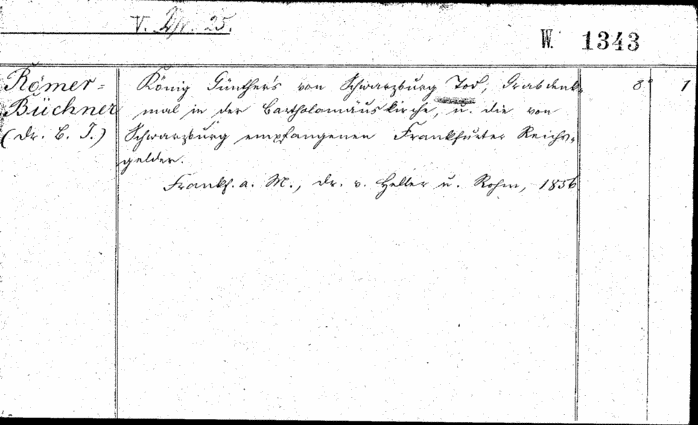 V. 25.
W. 1343
Römer-
Büchner
(Dr. B. J.)
König Günther's von Schwarzburg Tod, Grabdenk-
mal in der Bartholomäuskirche, u. die von
Schwarzburg empfangenen Frankfurter Reichs-
gelder.
Frankf. a. M., Dr. v. Keller u. Rohm, 1856
8° 1